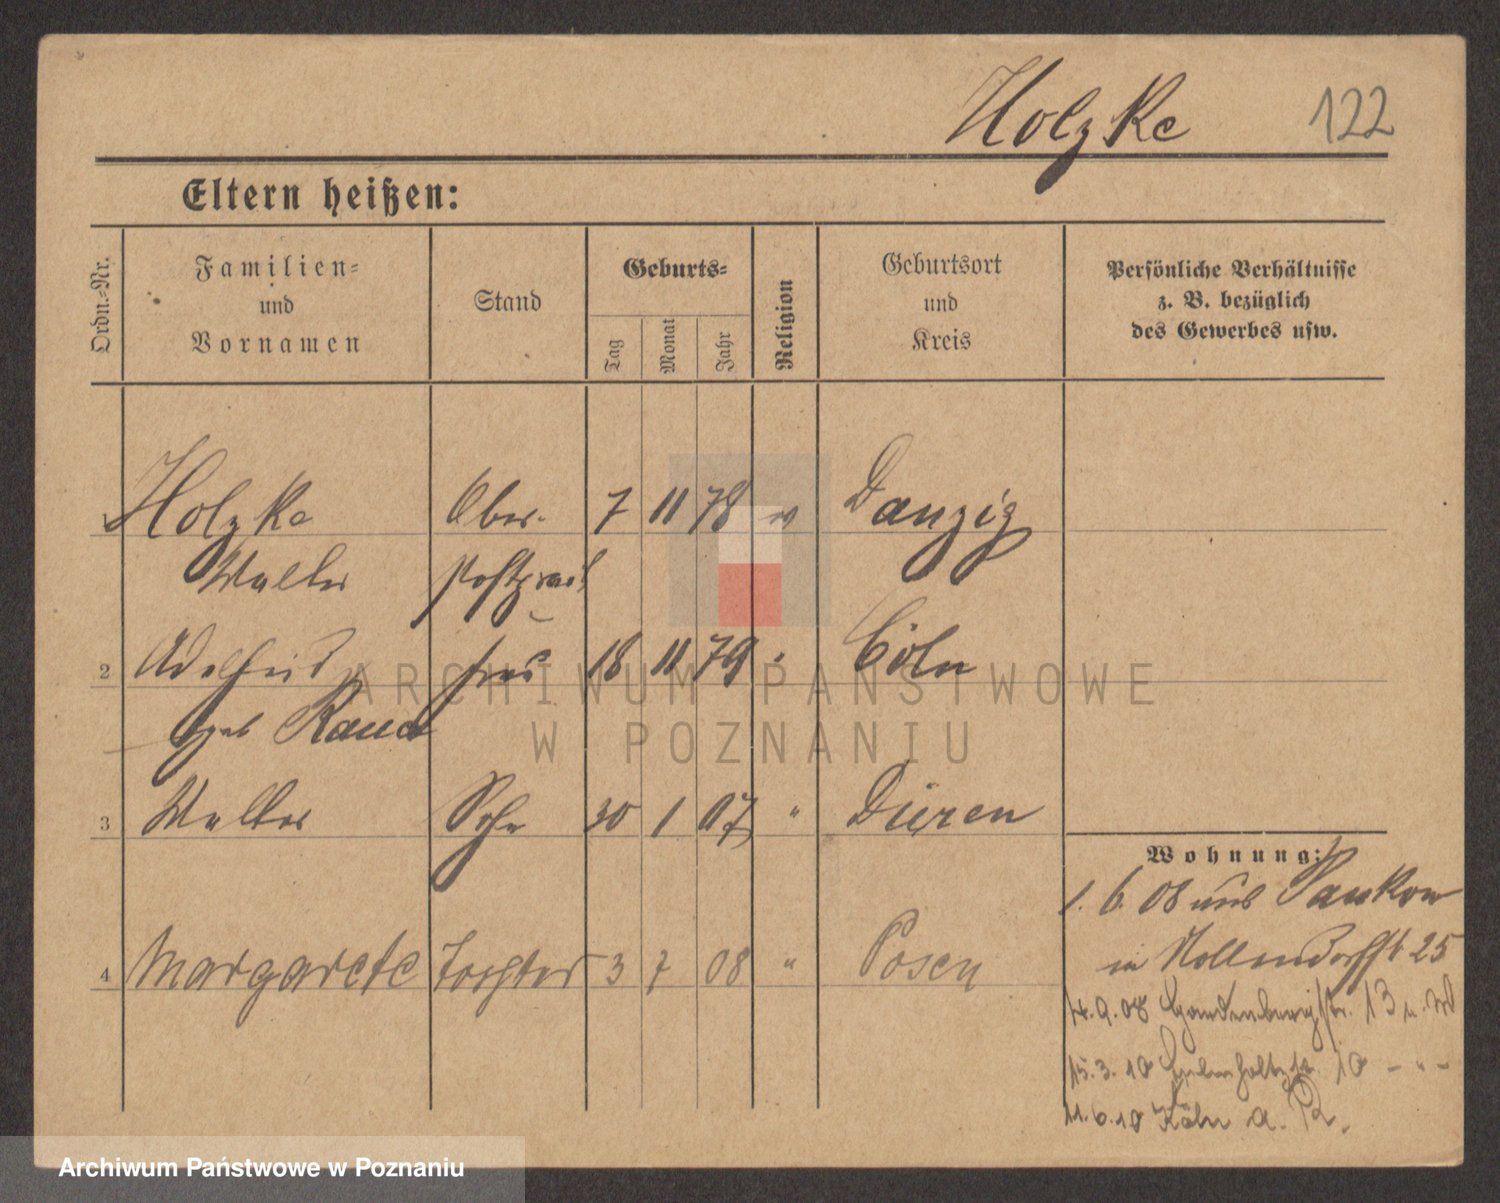 Holzke 122
Eltern heißen:
Ordn.-Nr.
Familien-
und
Vornamen
Stand
Geburts-
Tag
Monat
Jahr
Religion
Geburtsort
und
Kreis
Persönliche Verhältnisse
z. B. bezüglich
des Gewerbes usw.
1 Holzke Ober- 7 11 78 Danzig
Walter
2 Frau 18 11 79 Cöln
geb
3 Walter Sohn 30 1 07 " Düren
Wohnung:
1. 6. 08 aus Pankow
4 Margarete Tochter 3 7 08 " Posen
in Nollendorffst 25
14.9.08 13
15.3.10 10 - " -
11.6.10 Köln a. Rh.
ARCHIWUM PAŃSTWOWE
W POZNANIU
Archiwum Państwowe w Poznaniu